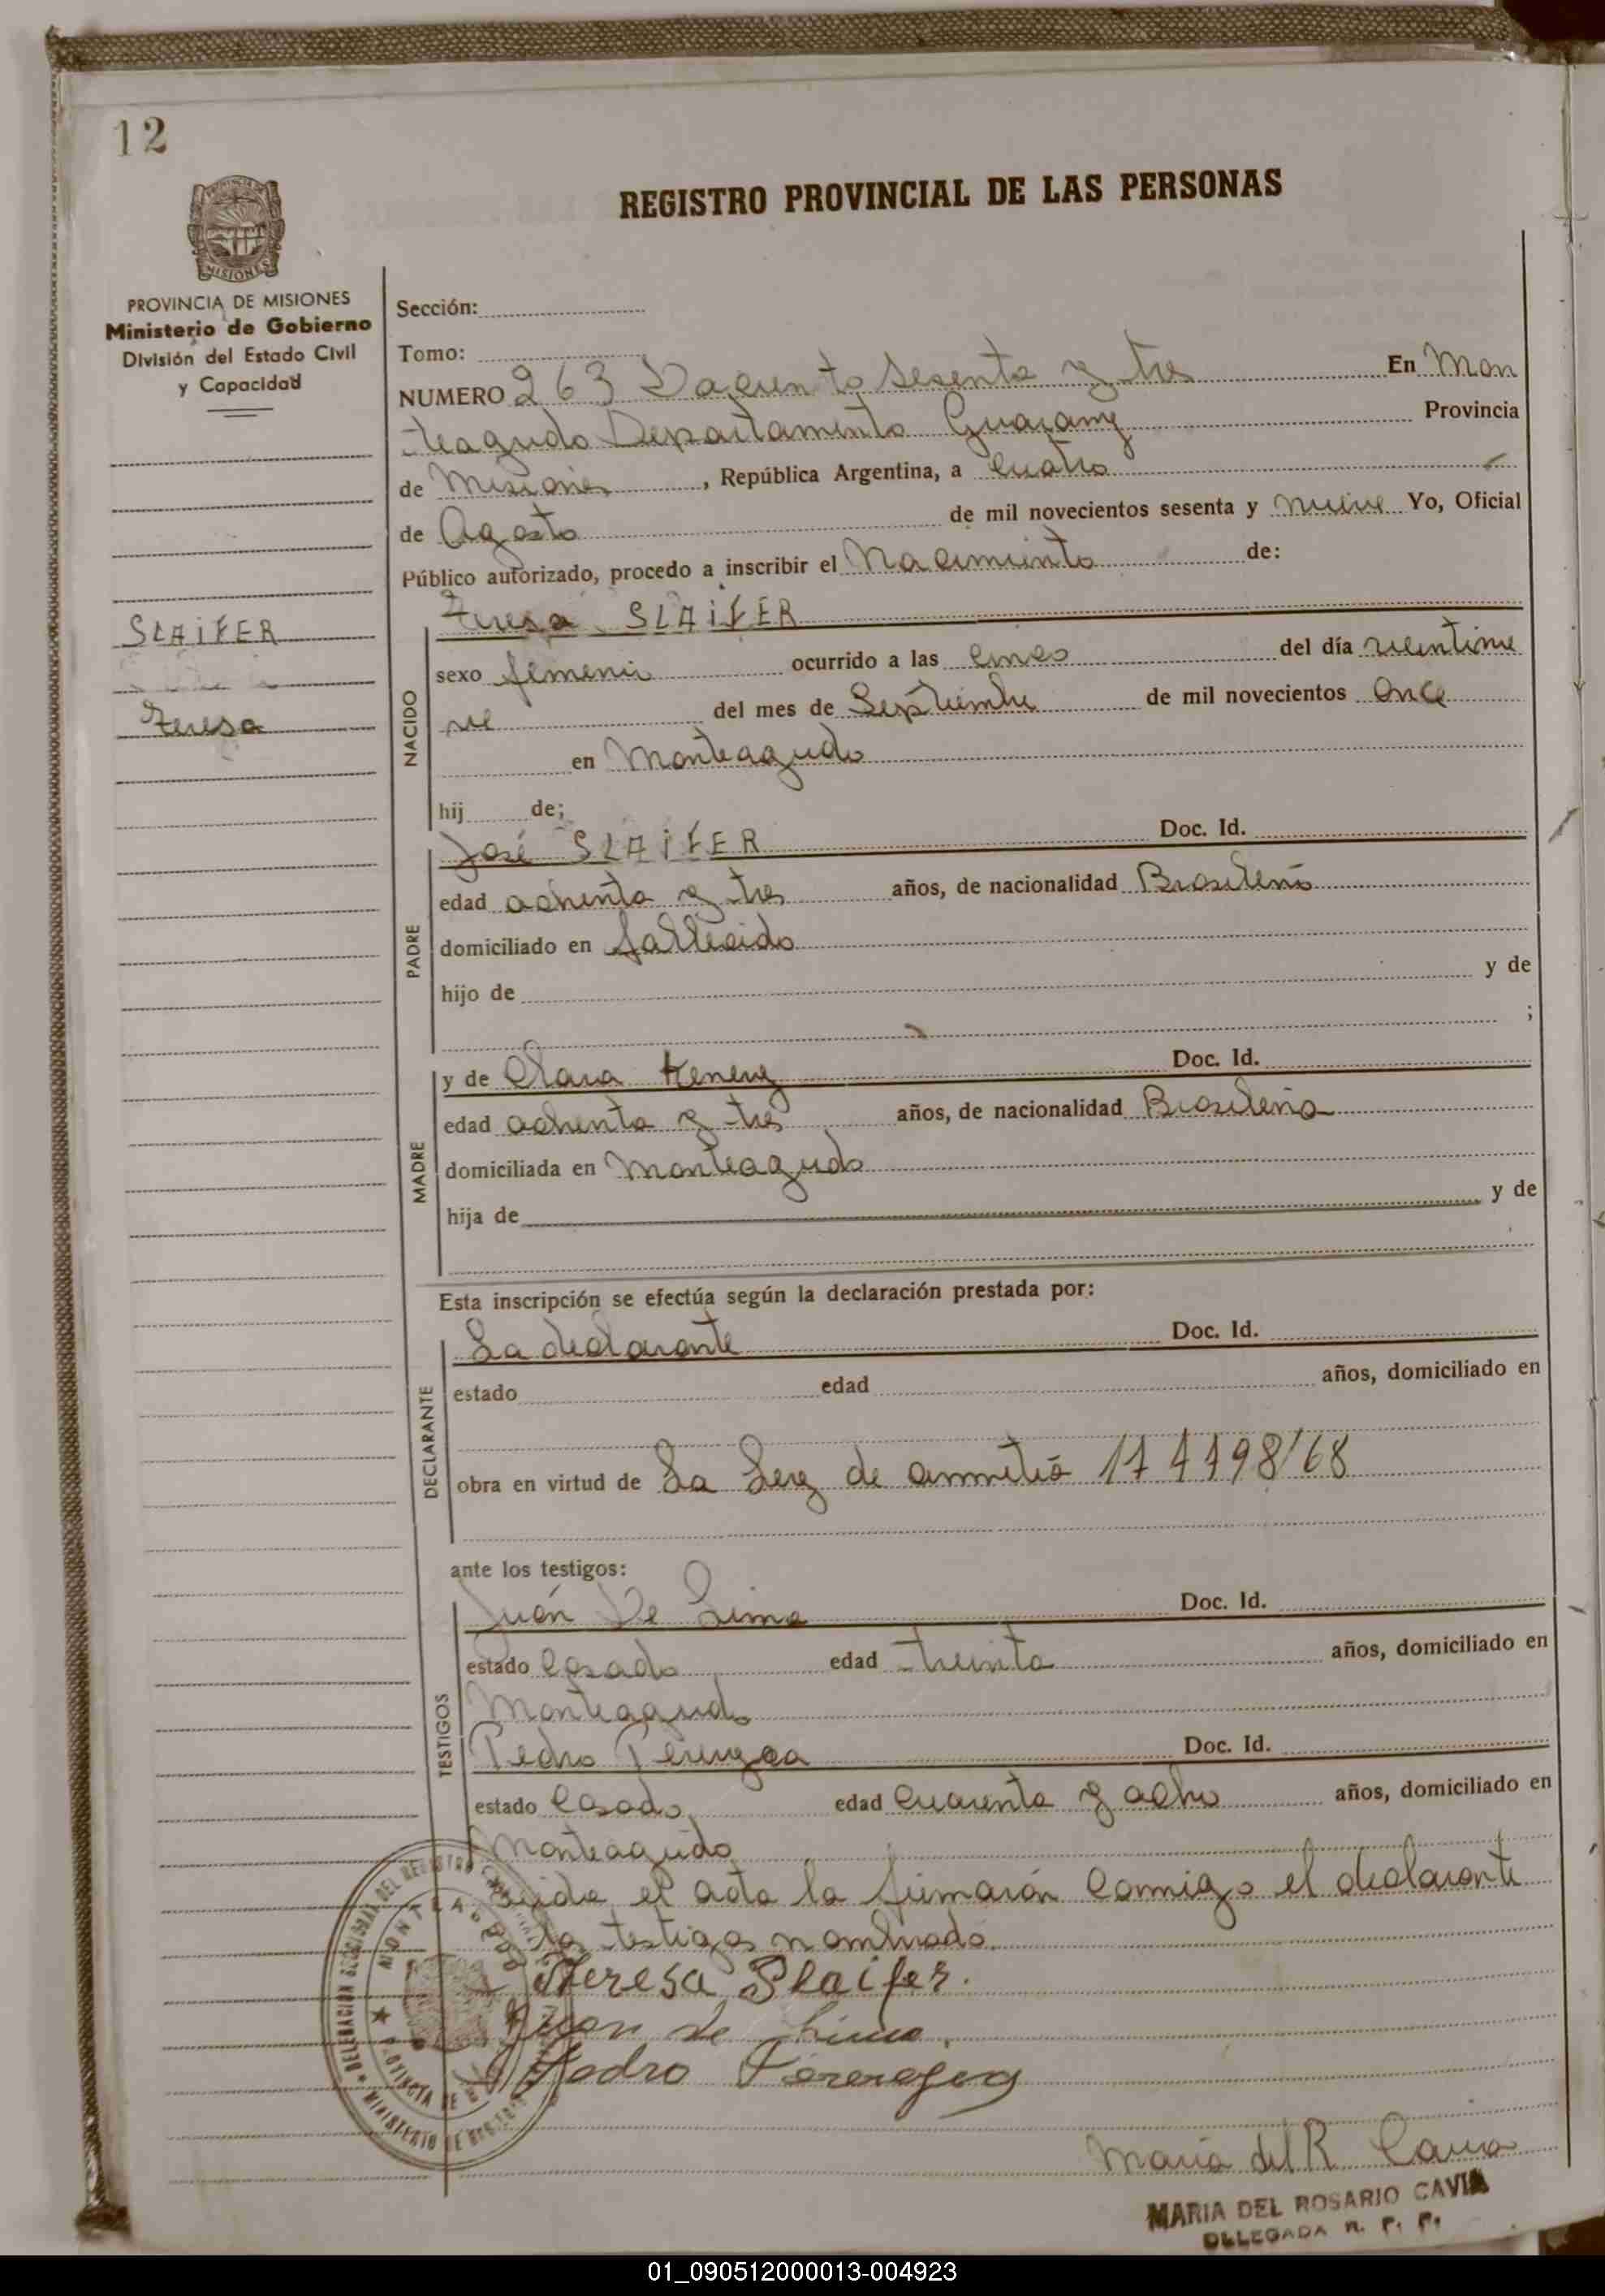 12
REGISTRO PROVINCIAL DE LAS PERSONAS
MISIONES
PROVINCIA DE MISIONES
Ministerio de Gobierno
División del Estado Civil
y Capacidad
SLAiFER
Teresa
Sección:
Tomo:
NUMERO 263 Dociento Sesenta y tres En Mon
teagudo Departamento Guarany Provincia
de Misiones, República Argentina, a Cuatro
de Agosto de mil novecientos sesenta y nueve Yo, Oficial
Público autorizado, procedo a inscribir el Nacimiento de:
NACIDO
Teresa SLAiFER
sexo femeni ocurrido a las cinco del día vientinue
ve del mes de Septiembre de mil novecientos Once
en Monteagudo
hij de;
PADRE
José SLAiFER Doc. Id.
edad ochenta y tres años, de nacionalidad Brasileño
domiciliado en fallecido
hijo de y de
;
MADRE
y de Clara Doc. Id.
edad ochenta y tres años, de nacionalidad Brasileña
domiciliada en Monteagudo
hija de y de
Esta inscripción se efectúa según la declaración prestada por:
DECLARANTE
La declarante Doc. Id.
estado edad años, domiciliado en
obra en virtud de La Ley de amnetia
ante los testigos:
TESTIGOS
Juán De Lima Doc. Id.
estado Casado edad treinta años, domiciliado en
Monteagudo
Pedro Doc. Id.
estado Casado edad Cuarenta y ocho años, domiciliado en
Monteagudo
el acta la firmarón Conmigo el declarante
testigos nombrado.
Teresa Slaifer.
Juan de Lima.
Pedro
DELEGACION SECCIONAL DEL REGISTRO
MONTEAGUDO
PROVINCIA DE
MINISTERIO DE
Maria del R Cavia
MARIA DEL ROSARIO CAVIA
DELEGADA R. P. P.
01_090512000013-004923